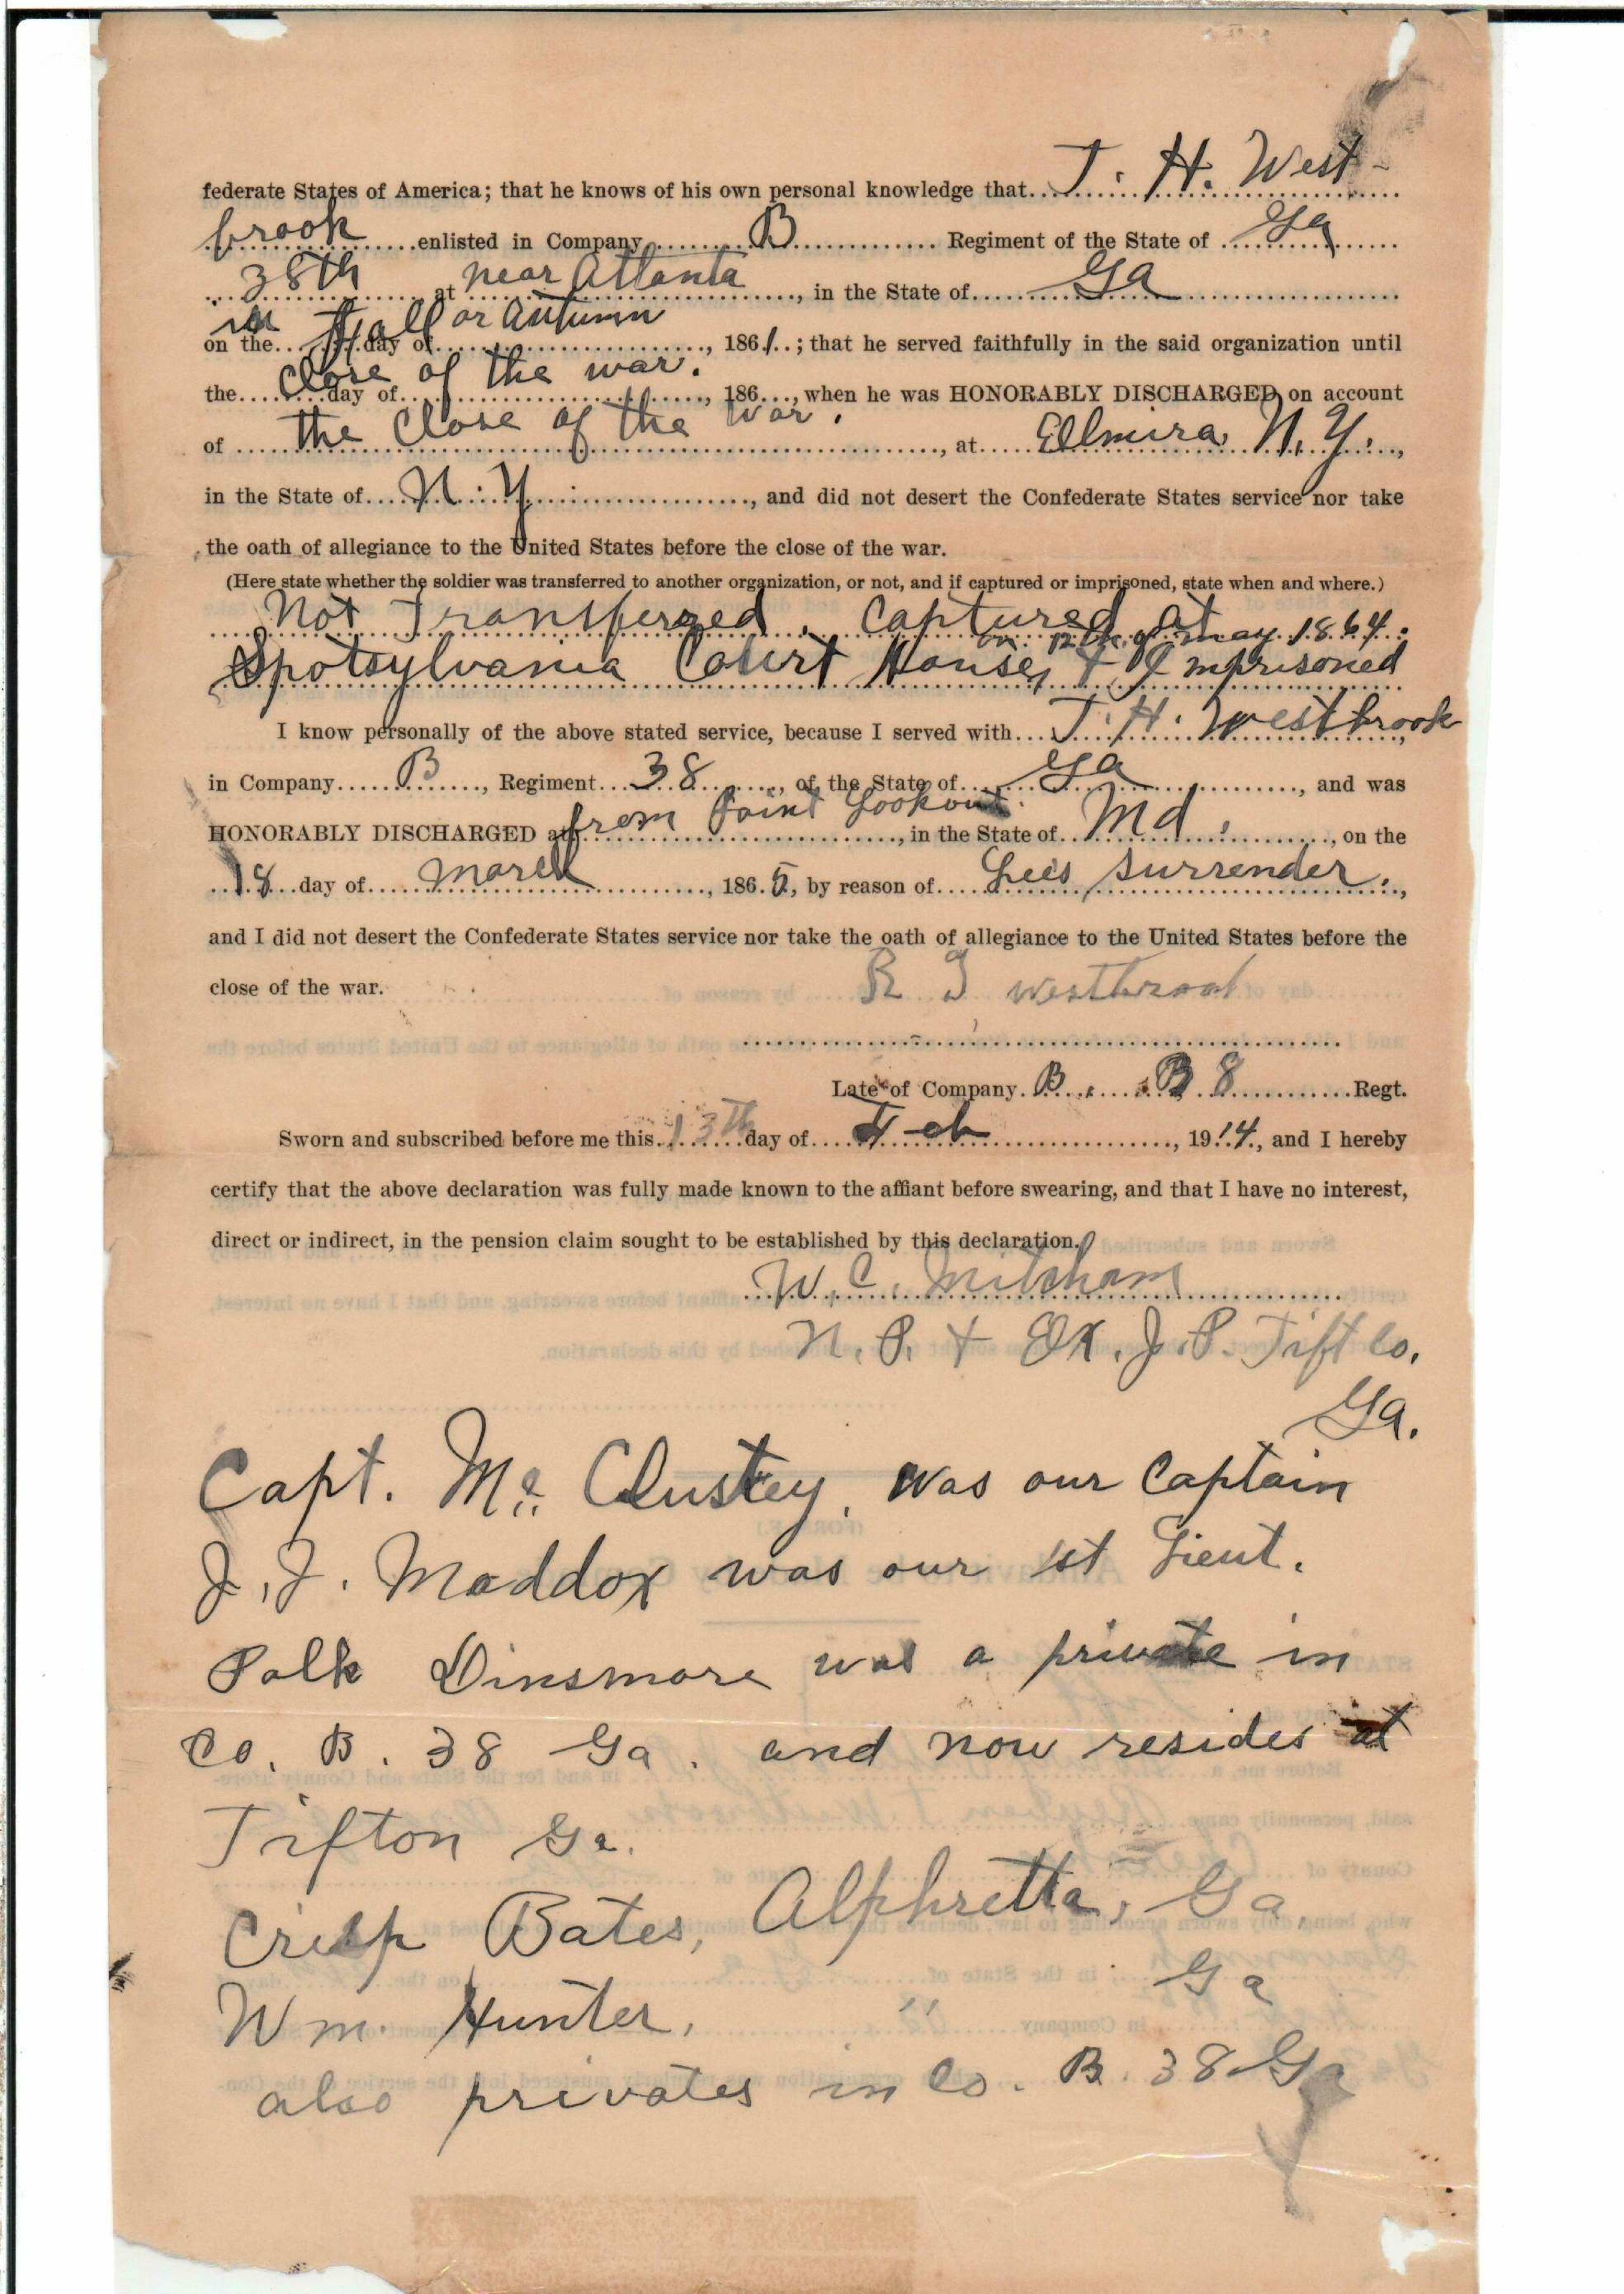 federate States of America; that he knows of his own personal knowledge that T. H. West-
brook enlisted in Company B Regiment of the State of Ga
38th at near Atlanta, in the State of Ga
in Fall or Autumn
on the day of, 1861.; that he served faithfully in the said organization until
Close of the war.
the day of, 186..., when he was HONORABLY DISCHARGED, on account
of the Close of the War., at Ellmira, N. Y.,
in the State of N. Y., and did not desert the Confederate States service nor take
the oath of allegiance to the United States before the close of the war.
(Here state whether the soldier was transferred to another organization, or not, and if captured or imprisoned, state when and where.)
Not Transferred. Captured at
on 12th of may 1864.
Spotsylvania Court House, & Imprisoned
I know personally of the above stated service, because I served with T. H. Westbrook
in Company B, Regiment 38, of the State of Ga, and was
HONORABLY DISCHARGED at from Point Lookout, in the State of Md., on the
18 day of March, 1865, by reason of Lee's surrender.,
and I did not desert the Confederate States service nor take the oath of allegiance to the United States before the
close of the war.
R T Westbrook
Late of Company B, 38 Regt.
Sworn and subscribed before me this 13th day of Feb, 1914, and I hereby
certify that the above declaration was fully made known to the affiant before swearing, and that I have no interest,
direct or indirect, in the pension claim sought to be established by this declaration.
W. C. Mitcham
N. P. & Ex. J. P. Tift Co.
Ga.
Capt. Mc. Clustey. Was our Captain
J. J. Maddox was our 1st Lieut.
Polk Dinsmore was a private in
Co. B. 38 Ga. and now resides at
Tifton Ga.
Crisp Bates, Alphretta, Ga.
Wm. Hunter, " Ga
also privates in Co. B. 38 Ga